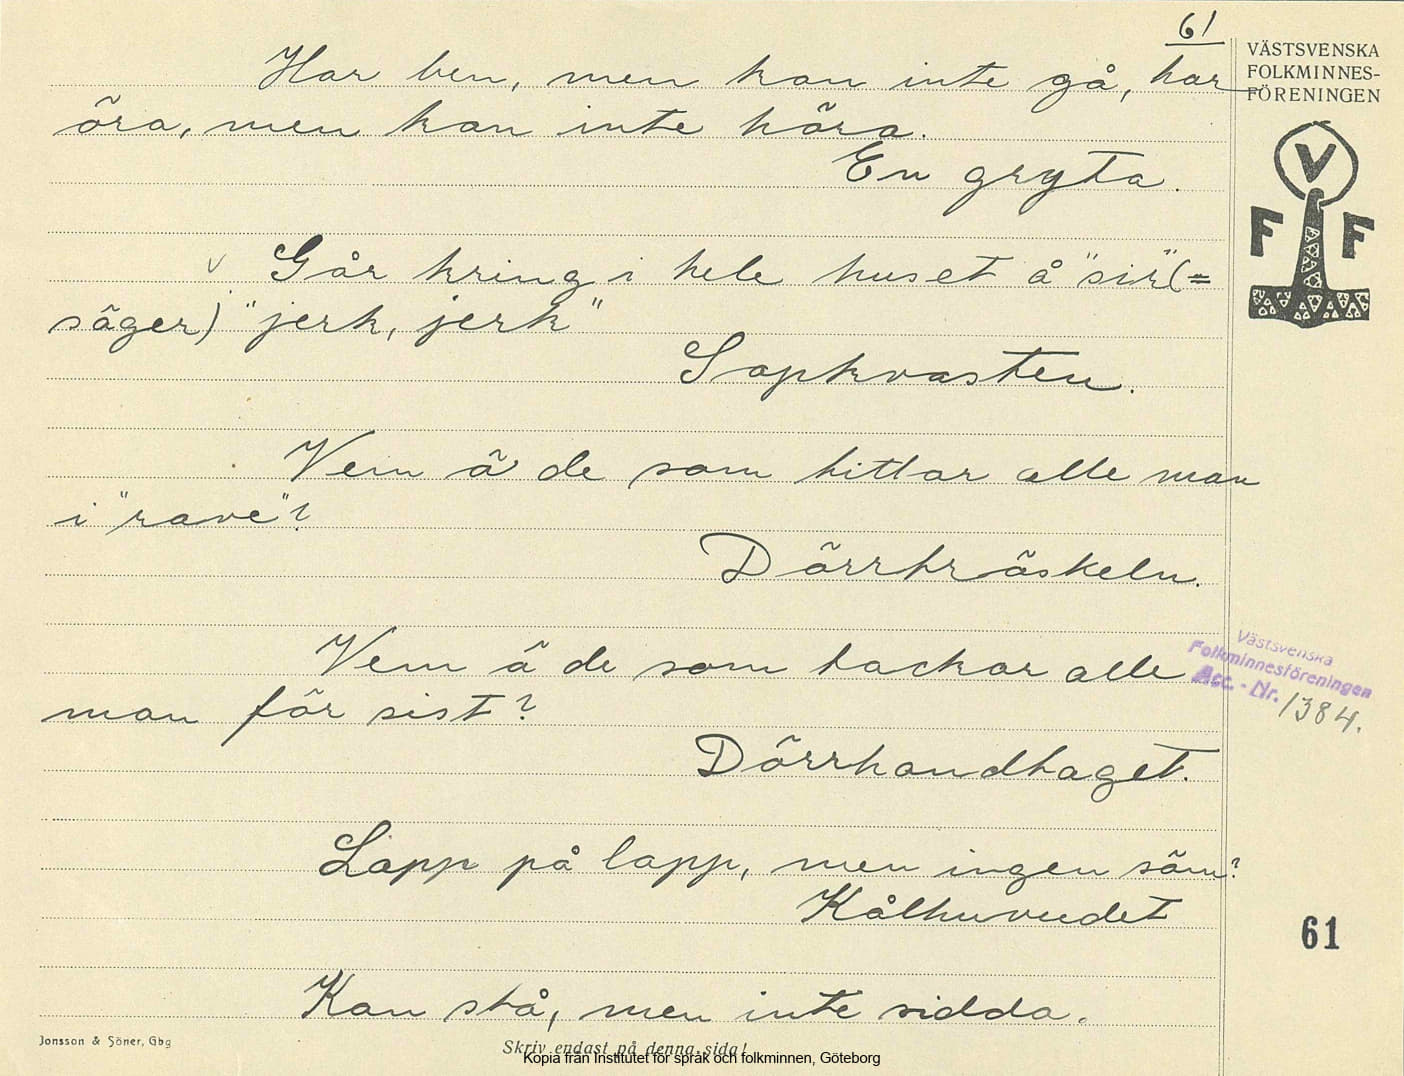 61
VÄSTSVENSKA
FOLKMINNES-
FÖRENINGEN
Har ben, men kan inte gå, har
öra, men kan inte höra.
En gryta.
V
F F
v Går kring i hele huset å "sir" (=
säger) "jerk, jerk"
Sopkvasten.
Vem ä de som tittar alle man
i "rave"?
Dörrträskeln.
Vem ä de som tackar alle
man för sist?
Dörrhandtaget.
Västsvenska
Folkminnesföreningen
Acc. - Nr. 1384.
Lapp på lapp, men ingen söm?
Kålhuvudet
61
Kan stå, men inte sidda.
Jonsson & Söner, Gbg
Skriv endast på denna sida!
Kopia från Institutet för språk och folkminnen, Göteborg